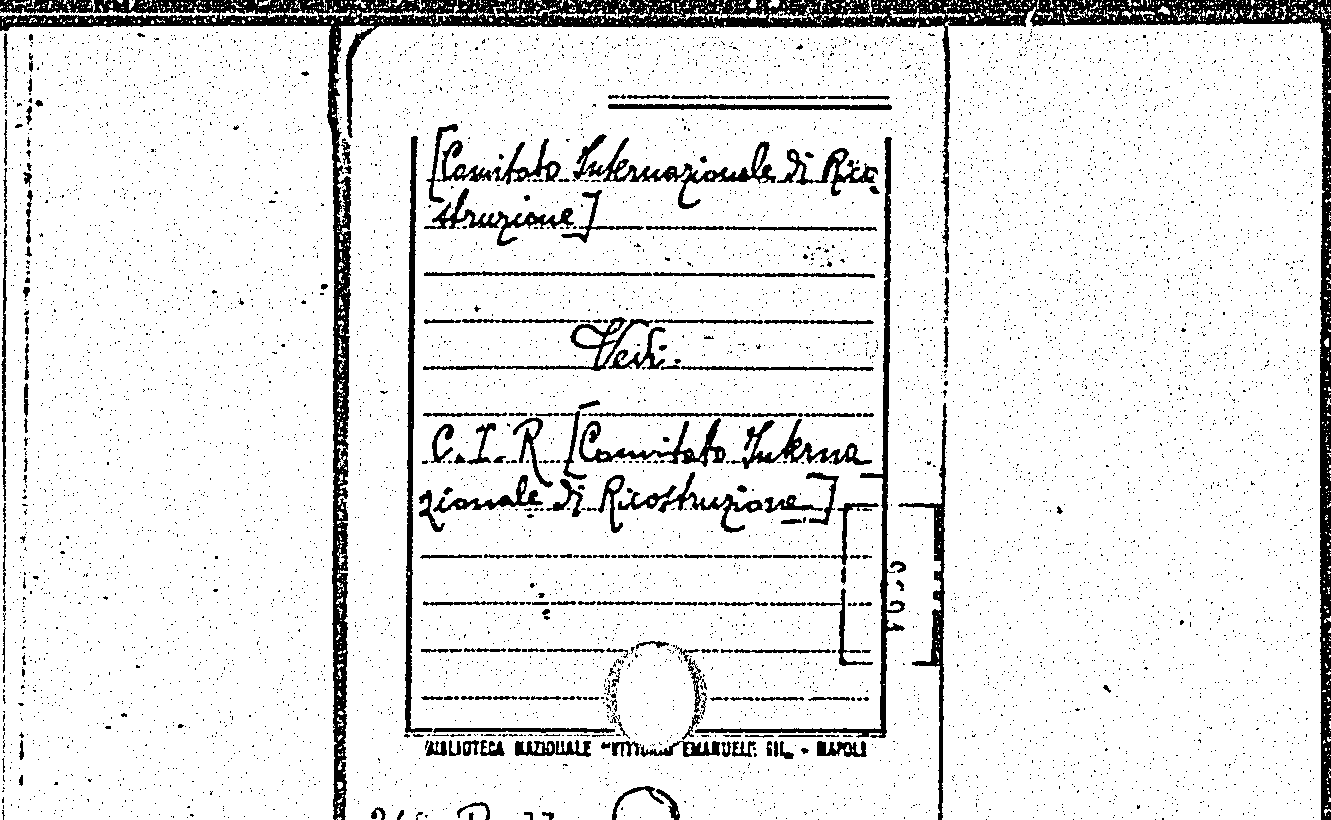 [Comitato Internazionale di Rico
struzione]
Vedi:
C.I.R [Comitato Interna
zionale di Ricostruzione]
BIBLIOTECA NAZIONALE "VITTORIO EMANUELE III„ - NAPOLI